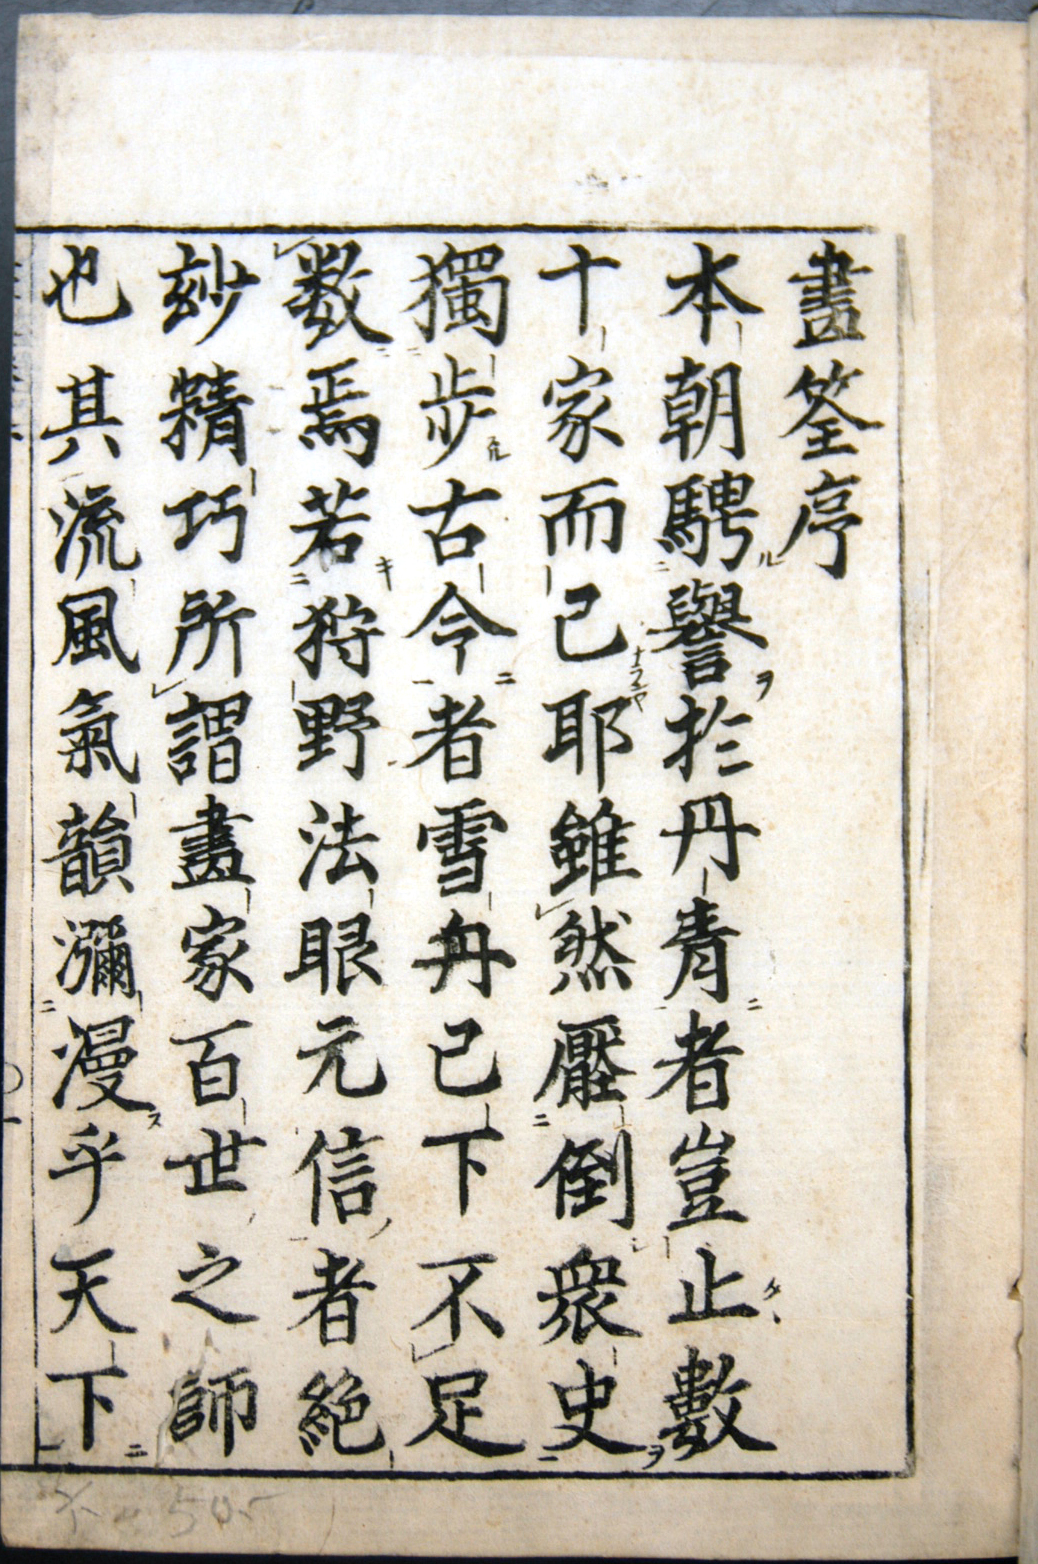 畫筌序
本朝騁譽於丹青者豈止數
十家而已耶雖然壓倒衆史
獨步古今者雪舟已下不足
數焉若狩野法眼元信者絕
玅精巧所謂畫家百世之師
也其流風氣韻瀰漫乎天下